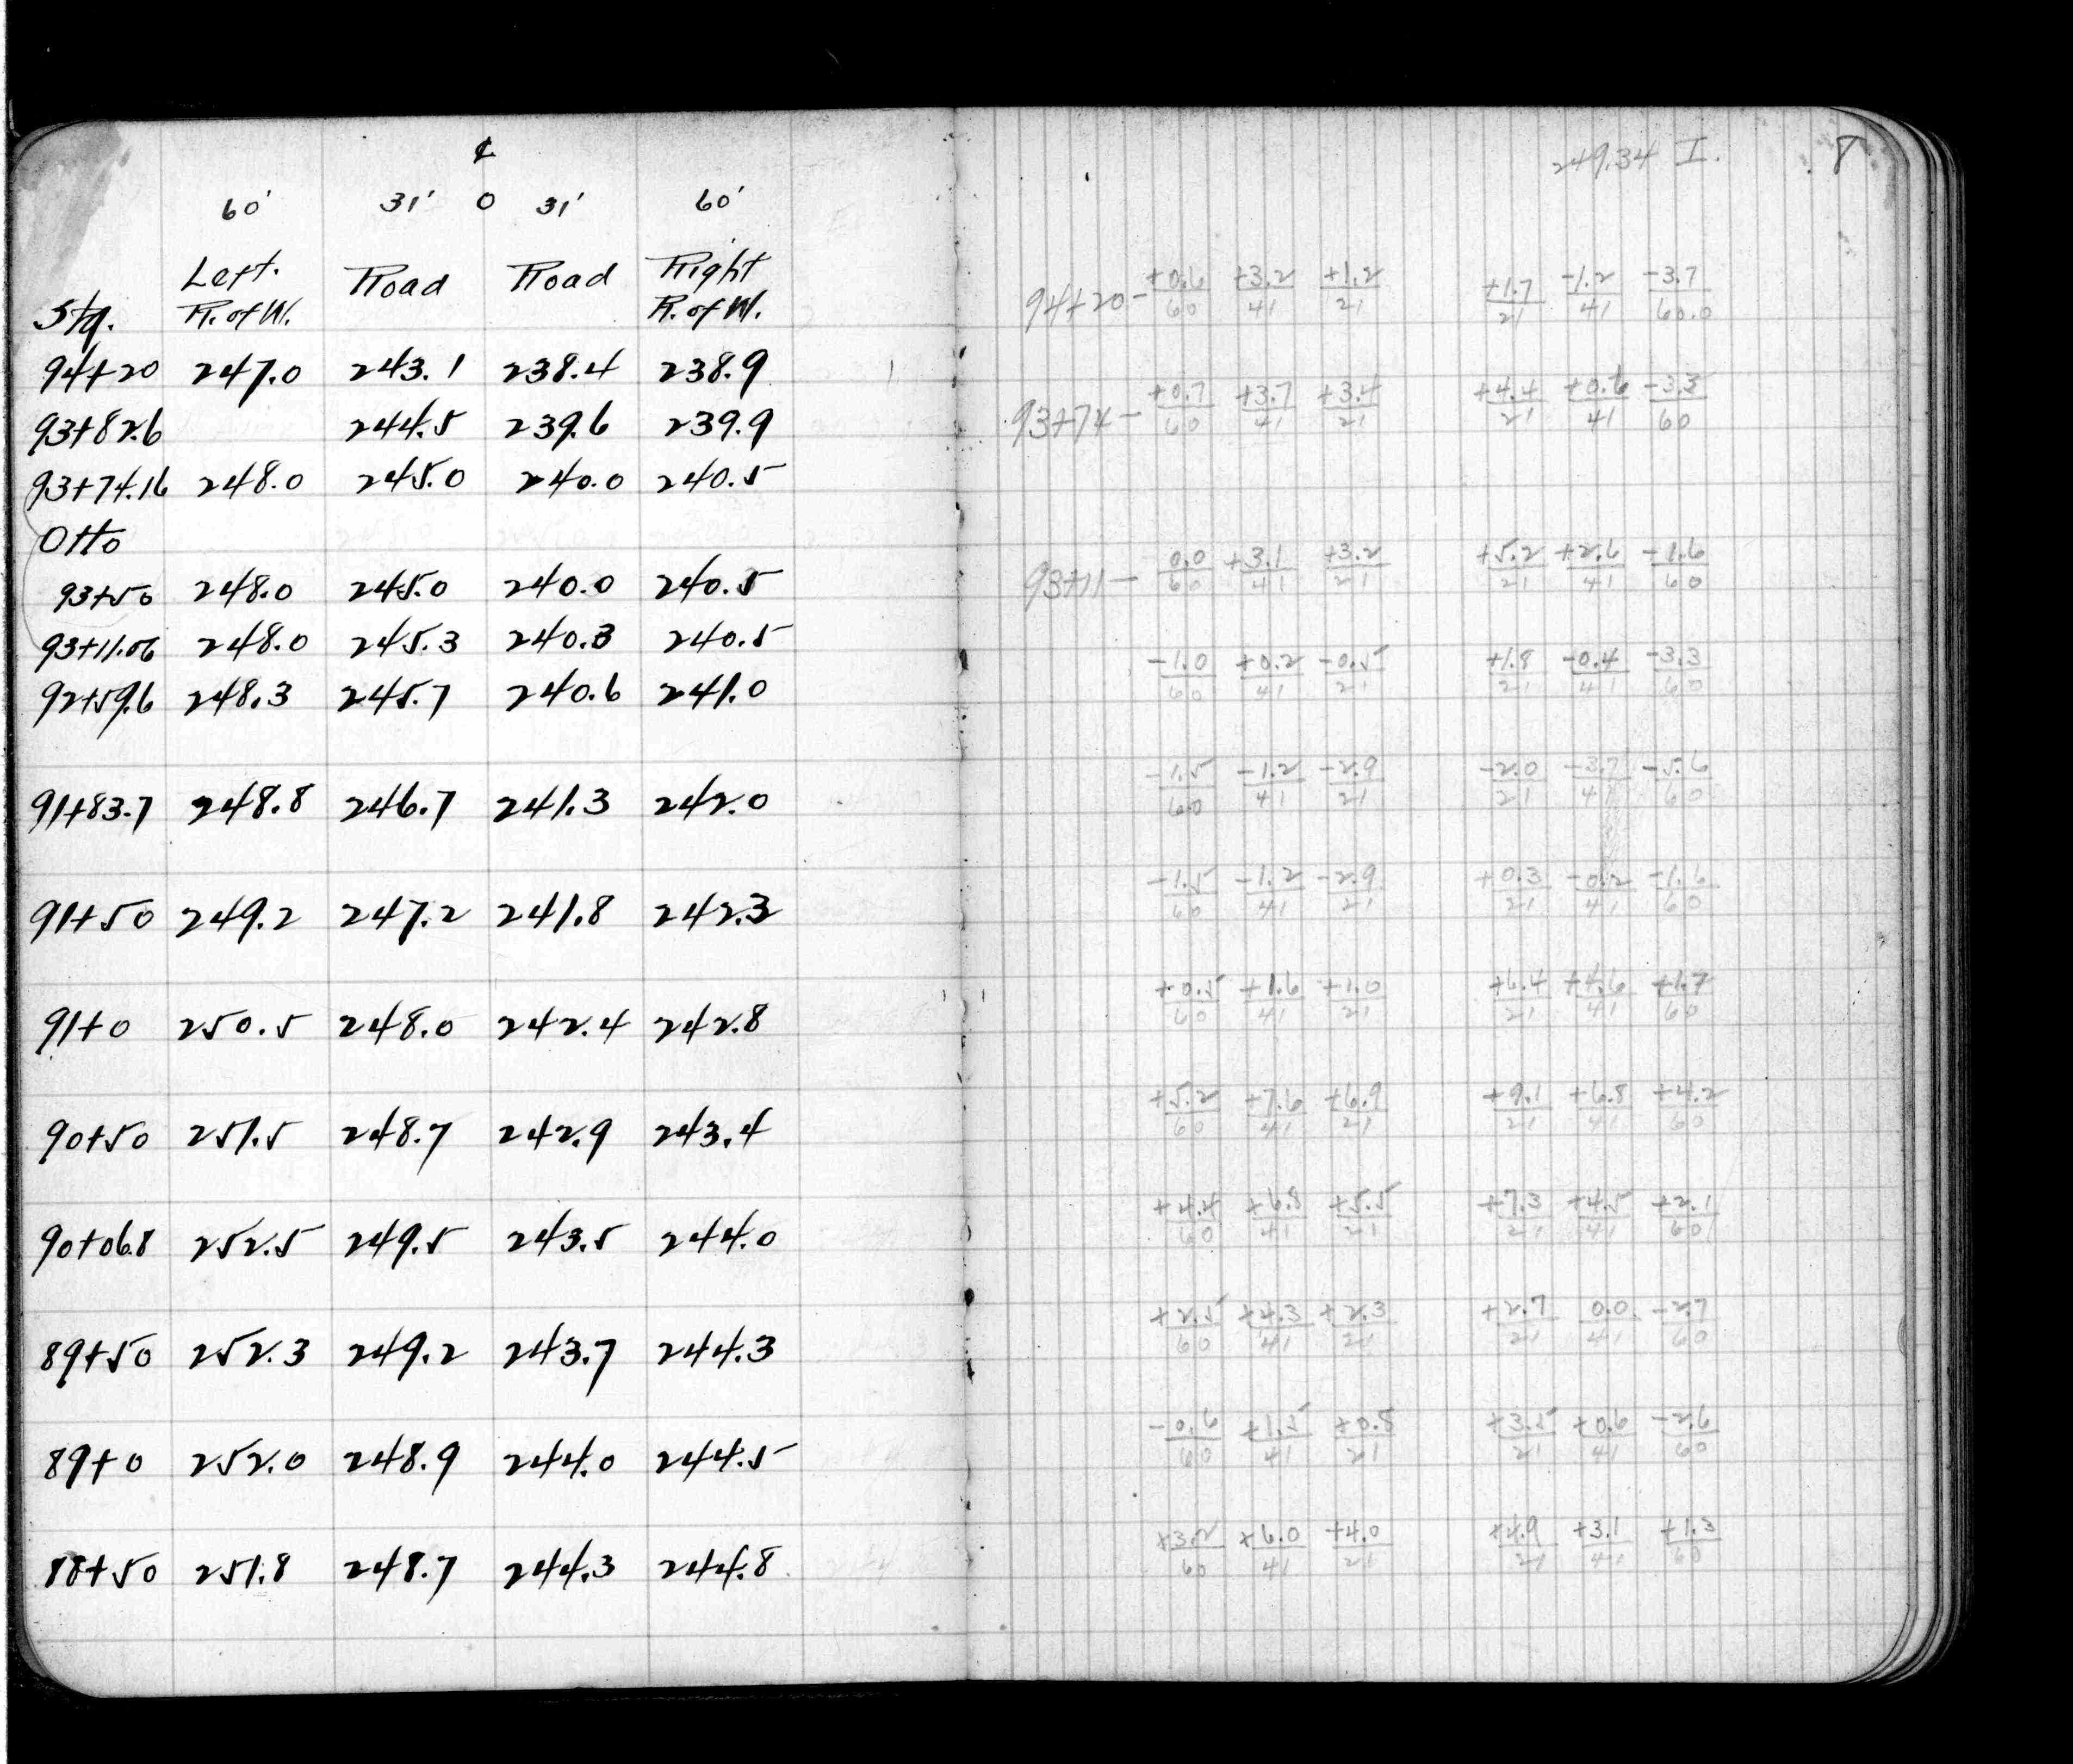 ₵
60' 31' 0 31' 60'
Left. Road Road Right
Sta. R. of W. R. of W.
94+20 247.0 243.1 238.4 238.9
93+82.6 244.5 239.6 239.9
93+74.16 248.0 245.0 240.0 240.5
Otto
93+50 248.0 245.0 240.0 240.5
93+11.06 248.0 245.3 240.3 240.5
92+59.6 248.3 245.7 240.6 241.0
91+83.7 248.8 246.7 241.3 242.0
91+50 249.2 247.2 241.8 242.3
91+0 250.5 248.0 242.4 242.8
90+50 251.5 248.7 242.9 243.4
90+06.8 252.5 249.5 243.5 244.0
89+50 252.3 249.2 243.7 244.3
89+0 252.0 248.9 244.0 244.5
88+50 251.8 248.7 244.3 244.8
249.34 I. 8
+0.6 +3.2 +1.2 +1.7 -1.2 -3.7
94+20- 60 41 21 21 41 60.0
+0.7 +3.7 +3.4 +4.4 +0.6 -3.3
93+74- 60 41 21 21 41 60
0.0 +3.1 +3.2 +5.2 +2.6 -1.6
93+11- 60 41 21 21 41 60
-1.0 +0.2 -0.5 +1.8 -0.4 -3.3
60 41 21 21 41 60
-1.5 -1.2 -2.9 -2.0 -3.7 -5.6
60 41 21 21 41 60
-1.5 -1.2 -2.9 +0.3 -0.2 -1.6
60 41 21 21 41 60
+0.5 +1.6 +1.0 +6.4 +4.6 +1.7
60 41 21 21 41 60
+5.2 +7.6 +6.9 +9.1 +6.8 +4.2
60 41 21 21 41 60
+4.4 +6.8 +5.5 +7.3 +4.5 +2.1
60 41 21 21 41 60
+2.5 +4.3 +2.3 +2.7 0.0 -2.7
60 41 21 21 41 60
-0.6 +1.5 +0.8 +3.5 +0.6 -2.6
60 41 21 21 41 60
+3.2 +6.0 +4.0 +4.9 +3.1 +1.3
60 41 21 21 41 60